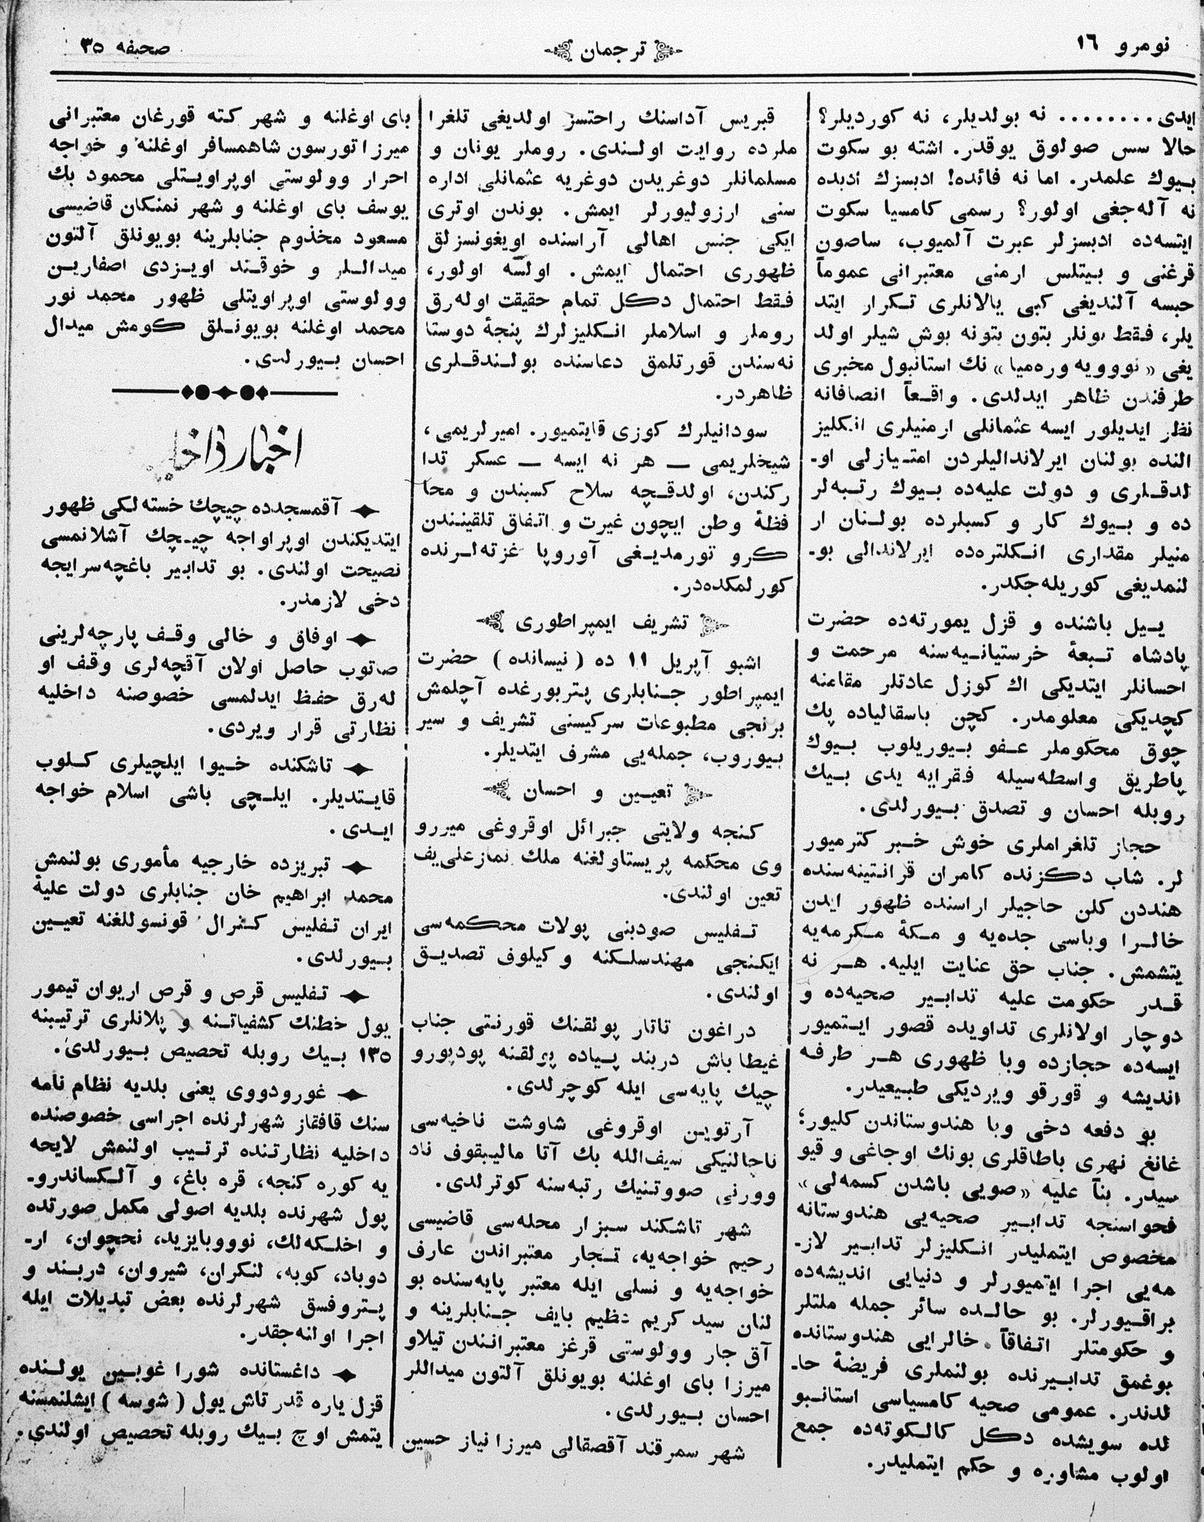 نومرو ١٦
ترجمان
صحیفه ٣٥
ایدی........ نه بولدیلر، نه کوردیلر؟
حالا سس صولوق یوقدر. اشته بو سکوت
بیوك علمدر. اما نه فائده! ادبسزك ادبده
نه آله‌جغی اولور؟ رسمی کامسیا سکوت
ایتسه‌ده ادبسزلر عبرت آلمیوب، ساصون
قرغنی و بیتلس ارمنی معتبرانی عموماً
حبسه آلندیغی کبی یالانلری تکرار ایتد
یلر، فقط بونلر بتون بتونه بوش شیلر اولد
یغی «نوویه وره‌میا» نك استانبول مخبری
طرفندن ظاهر ایدلدی. واقعاً انصافانه
نظر ایدیلور ایسه عثمانلی ارمنیلری انکلیز
النده بولنان ایرلاندالیلردن امتیازلی او-
لدقلری و دولت علیه‌ده بیوك رتبه‌لر
ده و بیوك کار و کسبلرده بولنان ار
منیلر مقداری انکلتره‌ده ایرلاندالی بو-
لنمدیغی کوریله‌جکدر.
ییل باشنده و قزل یمورته‌ده حضرت
پادشاه تبعهٔ خرستیانیه‌سنه مرحمت و
احسانلر ایتدیکی اك کوزل عادتلر مقامنه
کچدیکی معلومدر. کچن باسقالیاده پك
چوق محکوملر عفو بیوریلوب بیوك
پاطریق واسطه‌سیله فقرایه یدی بیك
روبله احسان و تصدق بیورلدی.
حجاز تلغراملری خوش خبر کترمیور
لر. شاب دکزنده کامران قرانتینه‌سنده
هنددن کلن حاجیلر اراسنده ظهور ایدن
خالرا وباسی جده‌یه و مکهٔ مکرمه‌یه
یتشمش. جناب حق عنایت ایلیه. هر نه
قدر حکومت علیه تدابیر صحیه‌ده و
دوچار اولانلری تداویده قصور ایتمیور
ایسه‌ده حجازده وبا ظهوری هر طرفه
اندیشه و قورقو ویردیکی طبیعیدر.
بو دفعه دخی وبا هندوستاندن کلیور؛
غانغ نهری باطاقلری بونك اوجاغی و قیو
سیدر. بنآ علیه «صویی باشدن کسمه‌لی»
فحواسنجه تدابیر صحیه‌یی هندوستانه
مخصوص ایتملیدر انکلیزلر تدابیر لاز-
مه‌یی اجرا ایتمیورلر و دنیایی اندیشه‌ده
براقیورلر. بو حالده سائر جمله ملتلر
و حکومتلر اتفاقاً خالرایی هندوستانده
بوغمق تدابیرنده بولنملری فریضهٔ حا-
لدندر. عمومی صحیه کامسیاسی استانبو
لده سویشده دکل کالکوته‌ده جمع
اولوب مشاوره و حکم ایتملیدر.
قبریس آداسنك راحتسز اولدیغی تلغرا
ملرده روایت اولندی. روملر یونان و
مسلمانلر دوغریدن دوغریه عثمانلی اداره
سنی ارزولیورلر ایمش. بوندن اوتری
ایکی جنس اهالی آراسنده اویغونسزلق
ظهوری احتمال ایمش. اولسه اولور،
فقط احتمال دکل تمام حقیقت اوله‌رق
روملر و اسلاملر انکلیزلرك پنجهٔ دوستا
نه‌سندن قورتلمق دعاسنده بولندقلری
ظاهردر.
سودانیلرك کوزی قایتمیور. امیرلریمی،
شیخلریمی ــ هر نه ایسه ــ عسکر تدا
رکندن، اولدقچه سلاح کسبندن و محا
فظهٔ وطن ایچون غیرت و اتفاق تلقینندن
کرو تورمدیغی آوروپا غزته‌لرنده
کورلمکده‌در.
تشریف ایمپراطوری
اشبو آپریل ١١ ده (نیسانده) حضرت
ایمپراطور جنابلری پتربورغده آچلمش
برنجی مطبوعات سرکیسنی تشریف و سیر
بیوروب، جمله‌یی مشرف ایتدیلر.
تعیین و احسان
کنجه ولایتی جبرائل اوقروغی میررو
وی محکمه پریستاولغنه ملك نمازعلی‌یف
تعین اولندی.
تفلیس صودبنی پولات محکمه‌سی
ایکنجی مهندسلکنه وکیلوف تصدیق
اولندی.
دراغون تاتار پولقنك قورنتی جناب
غیطاباش دربند پیاده پولقنه پودپورو
چیك پایه‌سی ایله کوچرلدی.
آرتوین اوقروغی شاوشت ناخیه‌سی
ناچالنیکی سیف‌الله بك آتا مالیبقوف ناد
وورنی صووتنیك رتبه‌سنه کوترلدی.
شهر تاشکند سبزار محله‌سی قاضیسی
رحیم خواجه‌یه، تجار معتبراندن عارف
خواجه‌یه و نسلی ایله معتبر پایه‌سنده بو
لنان سید کریم عظیم بایف جنابلرینه و
آق جار وولوستی قرغز معتبرانندن تیلاو
میرزا بای اوغلنه بویونلق آلتون میداللر
احسان بیورلدی.
شهر سمرقند آقصقالی میرزا نیاز حسین
بای اوغلنه و شهر کته قورغان معتبرانی
میرزا تورسون شاهمسافر اوغلنه و خواجه
احرار وولوستی اوپراویتلی محمود بك
یوسف بای اوغلنه و شهر نمنکان قاضیسی
مسعود مخذوم جنابلرینه بویونلق آلتون
میداللر و خوقند اویزدی اصفارین
وولوستی اوپراویتلی ظهور محمد نور
محمد اوغلنه بویونلق کومش میدال
احسان بیورلدی.
اخبار داخلیه
آقمسجدده چیچك خسته‌لکی ظهور
ایتدیکندن اوپراواجه چیچك آشلانمسی
نصیحت اولندی. بو تدابیر باغچه‌سرایجه
دخی لازمدر.
اوفاق و خالی وقف پارچه‌لرینی
صاتوب حاصل اولان آقچه‌لری وقف او
له‌رق حفیظ ایدلمسی خصوصنه داخلیه
نظارتی قرار ویردی.
تاشکنده خیوا ایلچیلری کلوب
قایتدیلر. ایلچی باشی اسلام خواجه
ایدی.
تبریزده خارجیه مأموری بولنمش
محمد ابراهیم خان جنابلری دولت علیهٔ
ایران تفلیس کنرال قونسوللغنه تعیین
بیورلدی.
تفلیس قرص و قرص اریوان تیمور
یول خطنك کشفیاتنه و پلانلری ترتیبنه
١٣٥ بیك روبله تحصیص بیورلدی.
غورودووی یعنی بلدیه نظام نامه
سنك قافقاز شهرلرنده اجراسی خصوصنده
داخلیه نظارتنده ترتیب اولنمش لایحه
یه کوره کنجه، قره باغ، و آلکساندرو-
پول شهرنده بلدیه اصولی مکمل صورتده
و اخلکه‌لك، نوووبایزید، نخچوان، ار-
دوباد، کوبه، لنکران، شیروان، دربند و
پتروفسق شهرلرنده بعض تبدیلات ایله
اجرا اولنه‌جقدر.
داغستانده شورا غوبین یولنده
قزل یاره قدر تاش یول (شوسه) ایشلنمسنه
یتمش اوچ بیك روبله تحصیص اولندی.